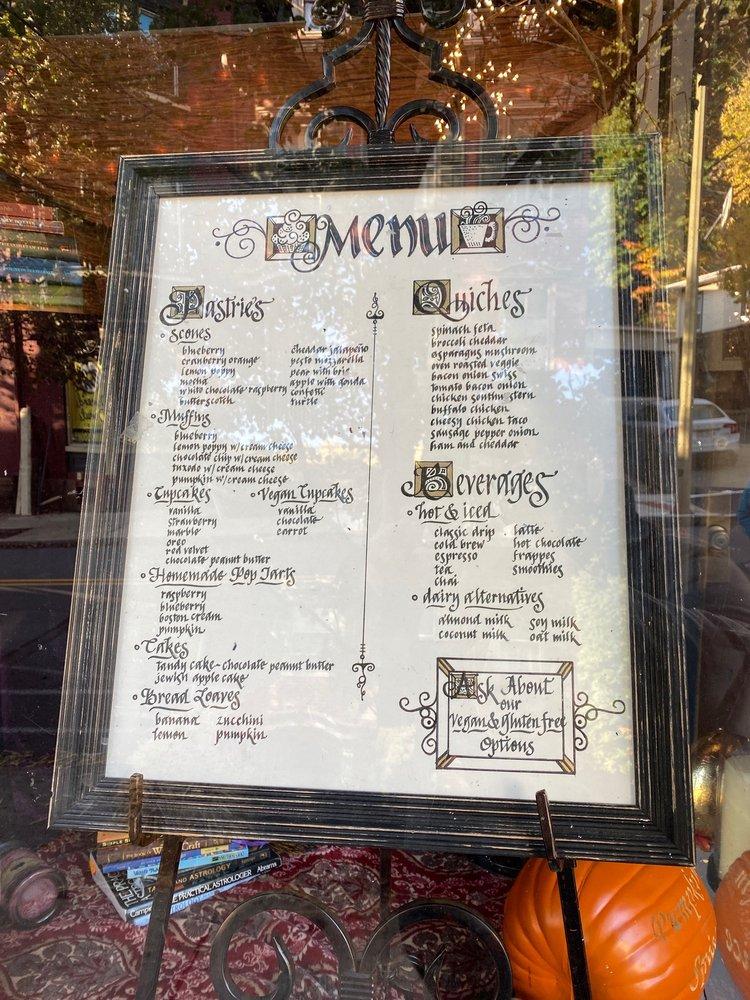 Menu
Pastries
Scones
blueberry
cranberry orange
lemon poppy
mocha
white chocolate raspberry
butterscotch
cheddar jalapeño
pesto mozzarella
pear with brie
apple with gouda
confetti
turtle
Muffins
blueberry
lemon poppy w/cream cheese
chocolate chip w/cream cheese
tuxedo w/cream cheese
pumpkin w/cream cheese
Cupcakes
vanilla
strawberry
marble
oreo
red velvet
chocolate peanut butter
Vegan Cupcakes
vanilla
chocolate
carrot
Homemade Pop Tarts
raspberry
blueberry
boston cream
pumpkin
Cakes
Tandy cake-chocolate peanut butter
jewish apple cake
Bread Loaves
banana zucchini
lemon pumpkin
Quiches
spinach feta
broccoli cheddar
asparagus mushroom
oven roasted veggie
bacon onion swiss
tomato bacon onion
chicken southw stern
buffalo chicken
cheesy chicken taco
sausage pepper onion
ham and cheddar
Beverages
hot & iced
classic drip
cold brew
espresso
tea
chai
latte
hot chocolate
frappes
smoothies
dairy alternatives
almond milk soy milk
coconut milk oat milk
Ask About
our
Vegan & gluten free
Options
Craft
TAROT AND ASTROLOGY
THE PRACTICAL ASTROLOGER Abrams
Pumpkin